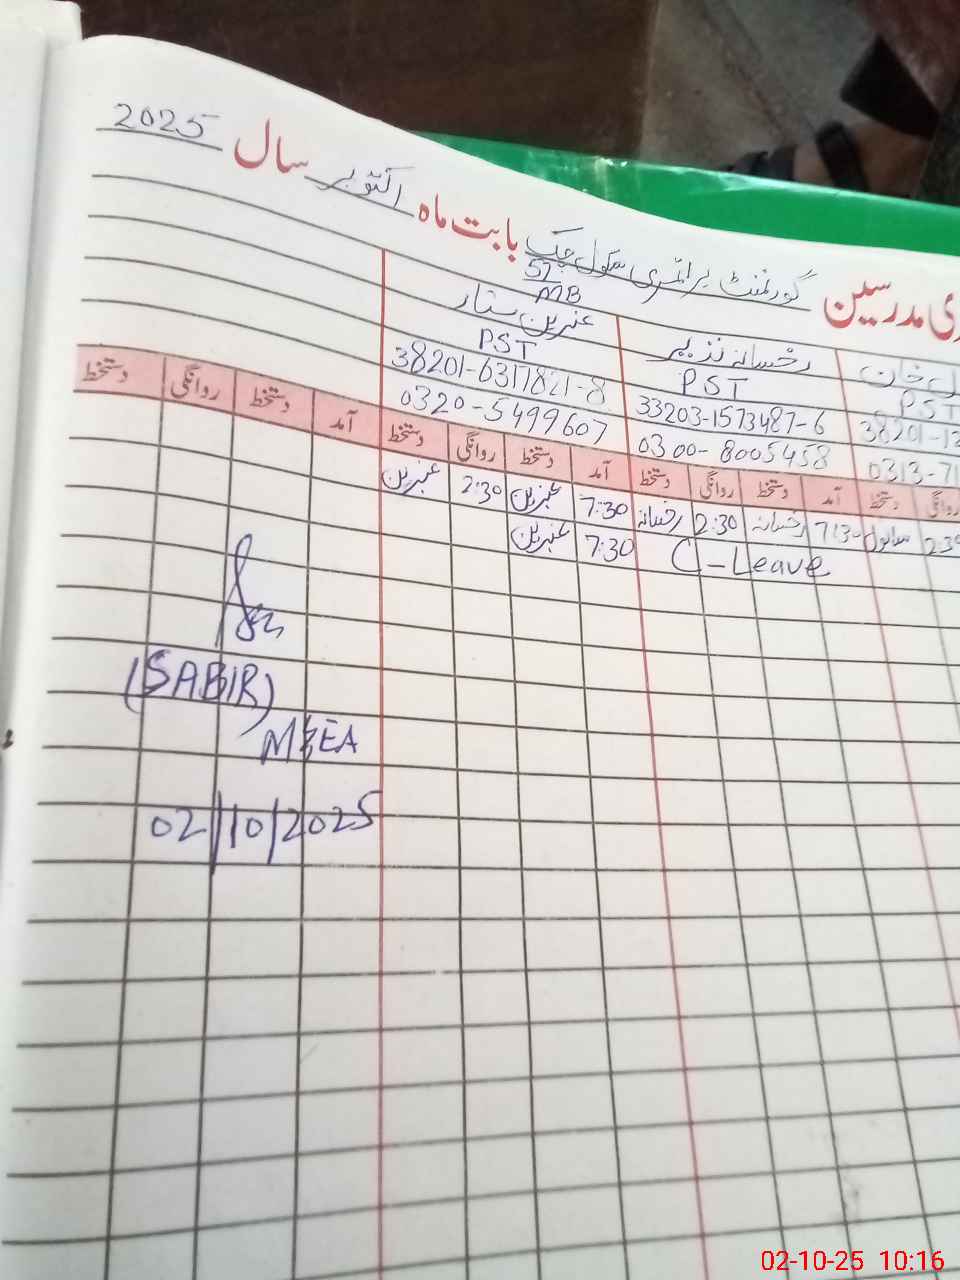 ری مدرسین گورنمنٹ پرائمری سکول چک 57 MB بابت ماہ اکتوبر سال 2025
ل خان رخسانہ نذیر عنبرین ستار
PST PST PST
38201-12 33203-1573487-6 38201-6317821-8
0313-71 0300-8005458 0320-5499607
روانگی دستخط آمد دستخط روانگی دستخط آمد دستخط روانگی دستخط آمد دستخط روانگی دستخط
2:30 7:30 رخسانہ 2:30 رخسانہ 7:30 عنبرین 2:30 عنبرین
C-Leave 7:30 عنبرین
(SABIR)
MEA
02/10/2025
02-10-25 10:16